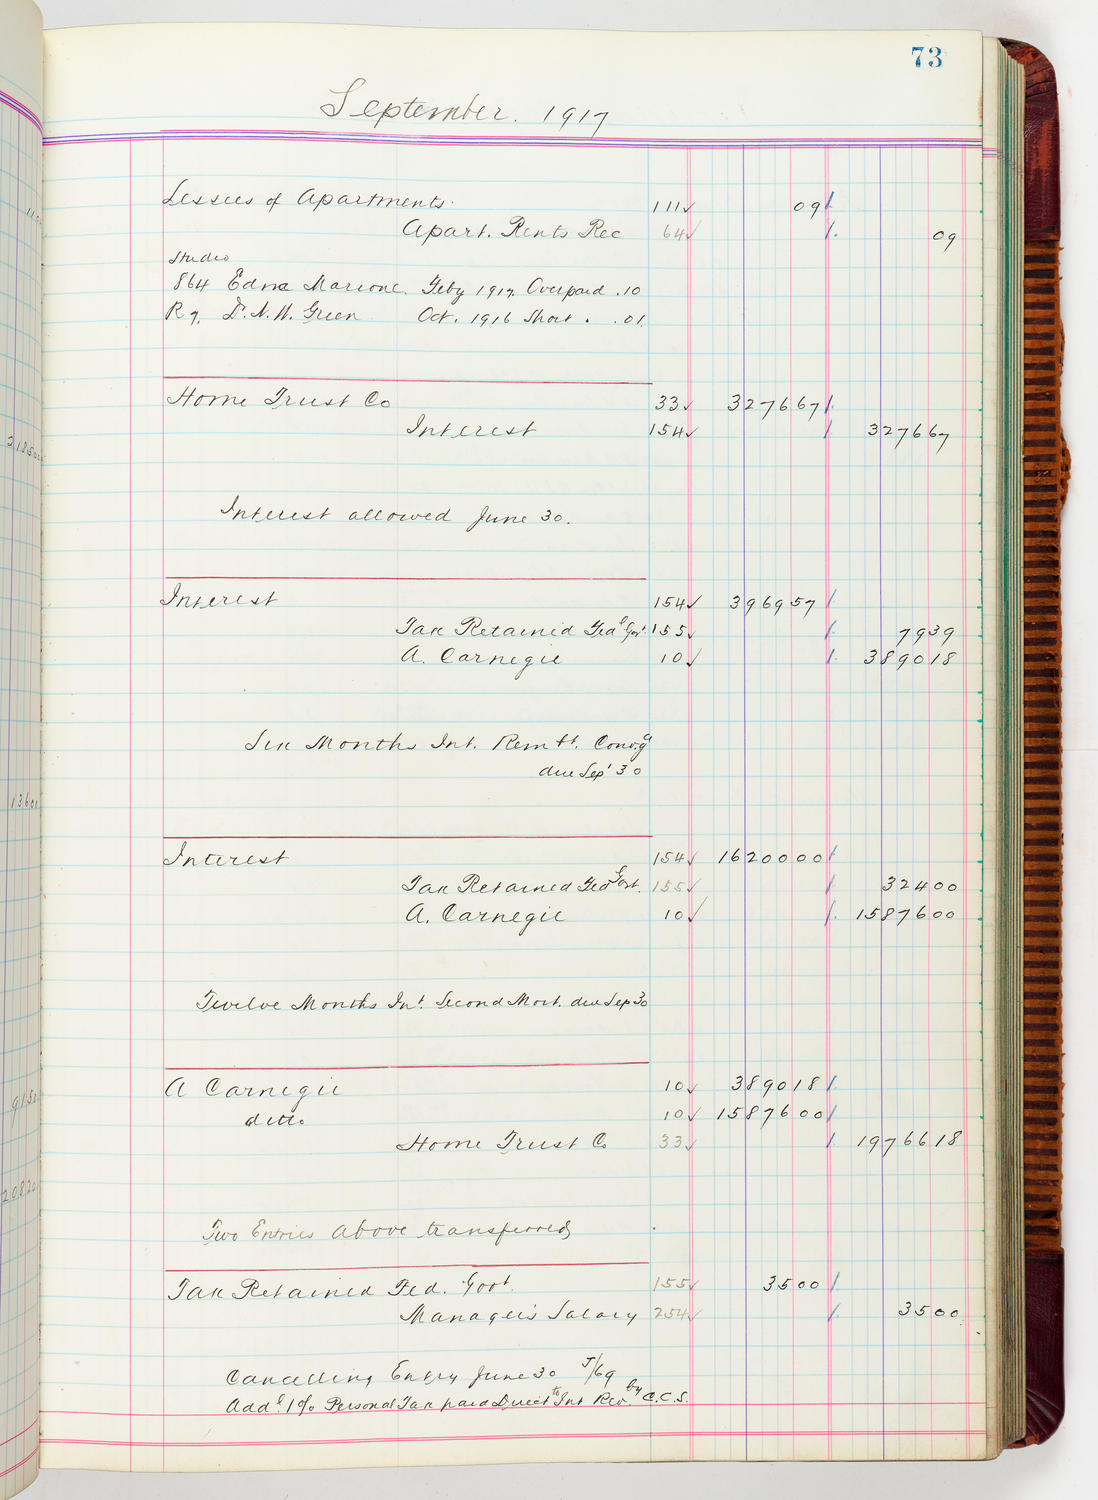 73
September. 1917
Lessees of Apartments. 111 09
Apart. Rents Rec 64 09
Studio
864 Edna Marione. Feby 1917. Overpaid .10
R 7. Dr. N. W. Green Oct. 1916 Short . .01
Home Trust Co 33 3276 67
Interest 154 3276 67
Interest allowed June 30.
Interest 154 3969 57
Tax Retained Fedl Govt. 155 79 39
A. Carnegie 10 3890 18
Six Months Int. Rem
due Sept 30
Interest 154 16200 00
Tax Retained Fed Govt. 155 324 00
A. Carnegie 10 15876 00
Twelve Months Int. Second Mort. due Sep 30
A Carnegie 10 3890 18
ditto 10 15876 00
Home Trust Co 33 19766 18
Two Entries above transferred
Tax Retained Fed. Govt. 155 35 00
Manager's Salary 254 35 00
Cancelling Entry June 30 J/69
Addl 1% Personal Tax paid Direct to Int Rev. by C.C.S.